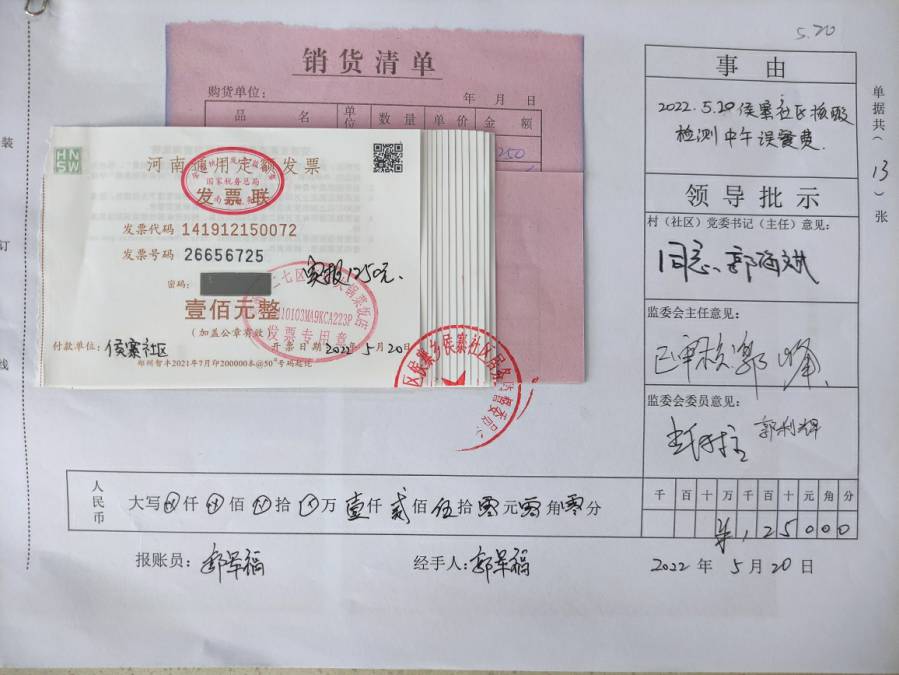 5.20
销货清单
购货单位：
年 月 日
品 名 单位 数 量 单 价 金 额
250
HN
SW
河南通用定额发票
国家税务总局
发票联
发票代码 141912150072
发票号码 26656725
密码：
实报1250元.
壹佰元整
（加盖公章有效）
发票专用章
付款单位：侯寨社区
开票日期 2022年5月20日
郑州智丰2021年7月印200000本@50°号码起讫
区侯寨乡侯寨社区居务监督委员
事 由
2022.5.20侯寨社区核酸
检测中午误餐费.
领导批示
村（社区）党委书记（主任）意见：
同意.郭海斌
监委会主任意见：
已审核郭峰
监委会委员意见：
郭利辉
单据共（13）张
人民币
大写⊗仟⊗佰⊗拾⊗万壹仟贰佰伍拾零元零角零分
千 百 十 万 千 百 十 元 角 分
¥ 1 2 5 0 0 0
报账员：郭军福
经手人：郭军福
2022 年 5 月 20 日
装
订
线